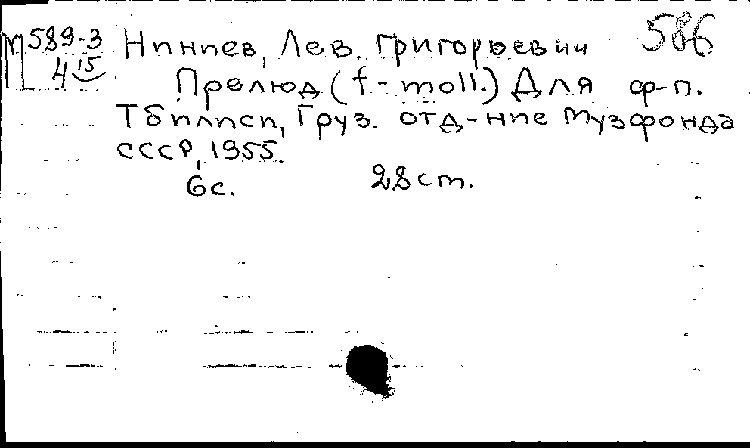 М 589-3 Ниниев, Лев Григорьевич 586
4 15 Прелюд (f-moll.) Для ф-п.
Тбилиси, Груз. отд-ние Музфонда
СССР, 1955.
6 с. 28 cm.